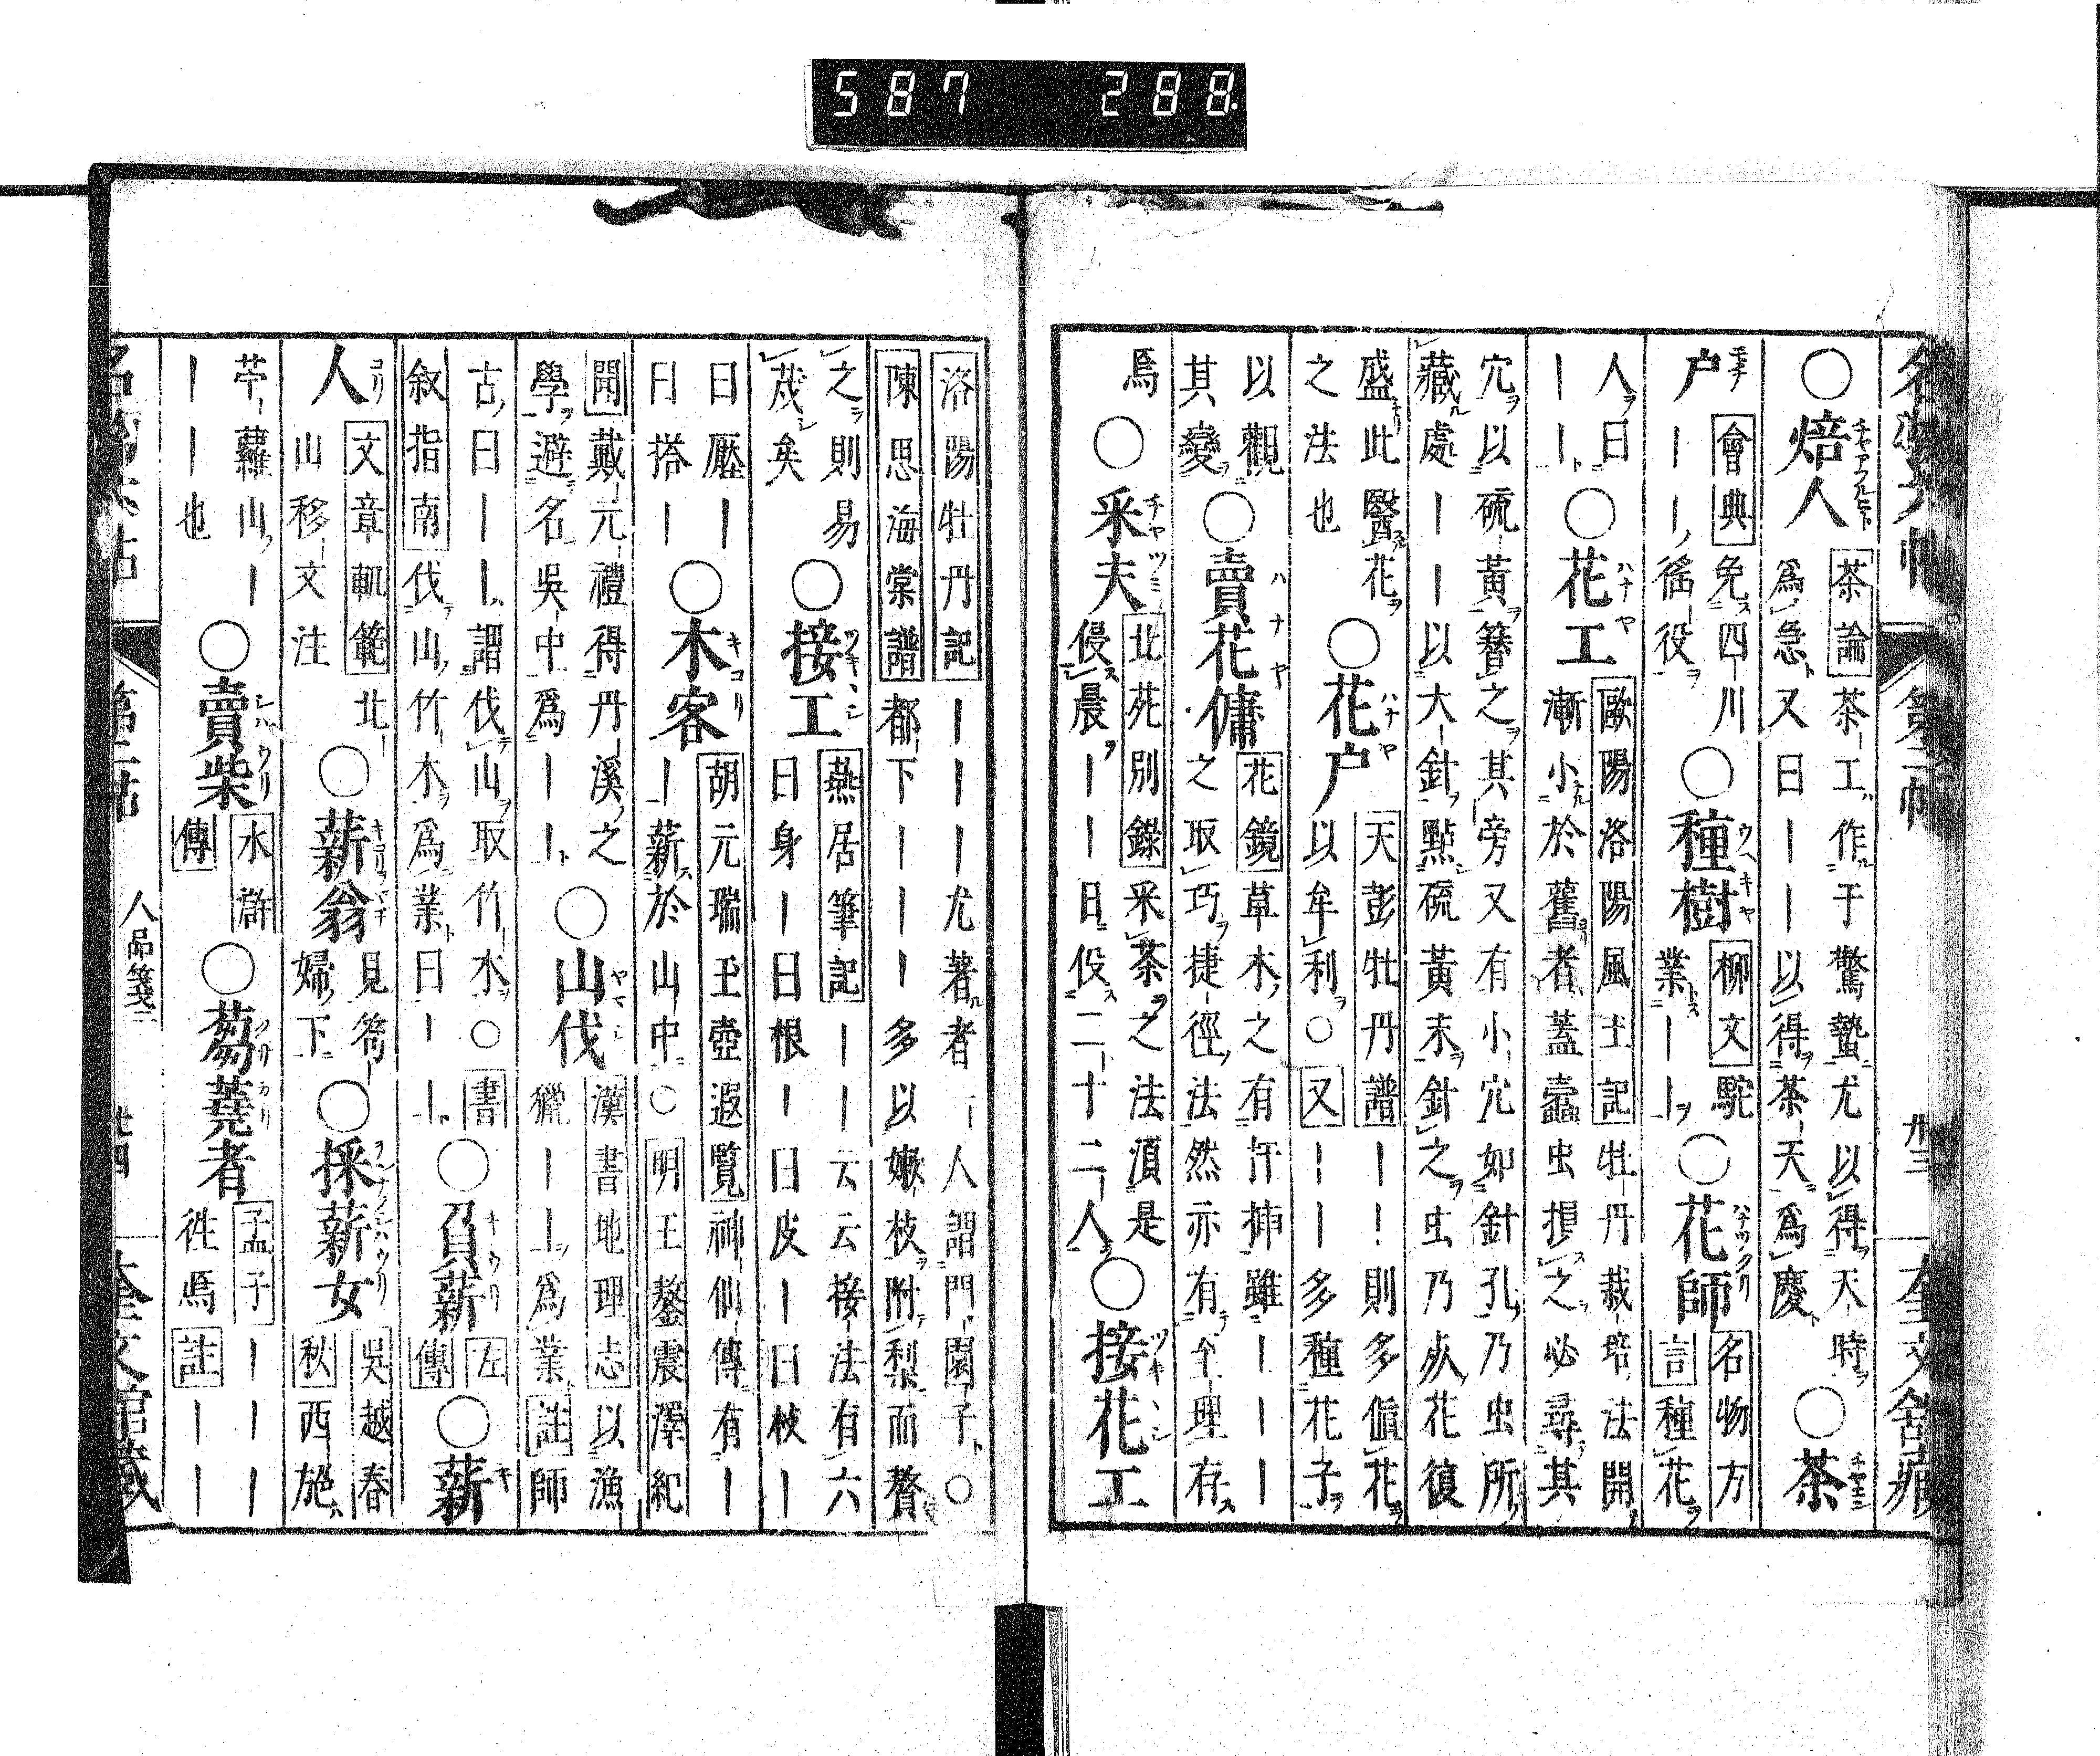 名物六帖 第二帖 九十三 奎文舘藏
○焙人 茶論 茶工作于驚蟄尤以得天時
為急又曰｜｜以得茶天為慶 ○茶
戸 會典 免四川
｜｜徭役 ○種樹 柳文 駝
業｜｜ ○花師 名物方
言 種花
人曰
｜｜ ○花工 歐陽洛陽風土記 牡丹栽培法開
漸小於舊者蓋蠹虫損之必尋其
穴以硫黄簪之其旁又有小穴如針孔乃虫所
藏處｜｜以大針點硫黄末針之虫乃死花復
盛此醫花
之法也 ○花戸 天彭牡丹譜 ｜｜則多植花
以牟利○又｜｜多種花子
以觀
其變 ○賣花傭 花鏡 草木之有扦插雖｜｜｜
之取巧捷徑法然亦有至理存
焉 ○采夫 北苑別錄 采茶之法須是
侵晨｜｜日役二十二人 ○接花工
洛陽牡丹記 ｜｜｜尤著者一人謂門園子○
陳思海棠譜 都下｜｜｜多以嫩枝附梨而贅
之則易
茂矣 ○接工 燕居筆記 ｜｜云云接法有六
曰身｜曰根｜曰皮｜曰枝｜
曰壓｜
曰搭｜ ○木客 胡元瑞玉壺遐覽 神仙傳有｜
｜薪於山中○明王鏊震澤紀
聞 戴元禮得丹溪之
學避名吳中為｜｜ ○山伐 漢書地理志 以漁
獵｜｜為業 註 師
古曰｜｜謂伐山取竹木○書
叙指南 伐山竹木為業曰｜｜ ○負薪 左
傳 ○薪
人 文章軌範 北
山移文注 ○薪翁 見筍
婦下 ○採薪女 吳越春
秋 西施
苧蘿山｜
｜｜也 ○賣柴 水滸
傳 ○芻蕘者 孟子 ｜｜｜
往焉 註 ｜｜
名物六帖 第二帖 人品箋二 奎文館藏
587 288